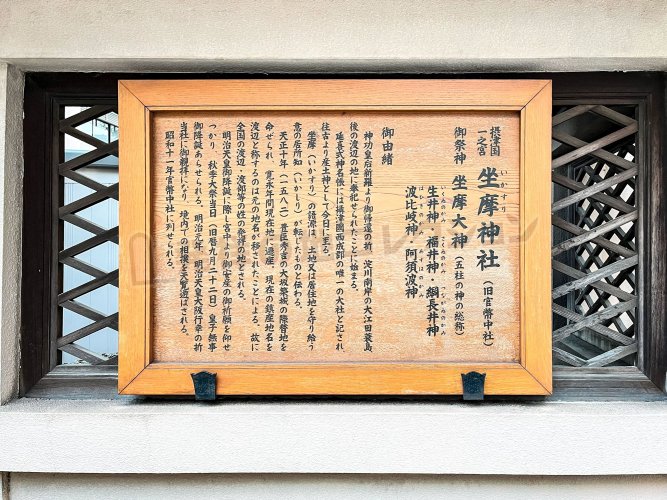 摂津国
一之宮
坐摩神社（旧官幣中社）
いかすり
御祭神 坐摩大神（五柱の神の総称）
生井神・福井神・綱長井神
波比岐神・阿須波神
御由緒
神功皇后新羅より御帰還の折、淀川南岸の大江田蓑島
後の渡辺の地に奉祀せられたことに始まる。
延喜式神名帳には摂津國西成郡の唯一の大社と記され
往古より産土神として今日に至る。
坐摩（いかすり）の語源は、土地又は居住地を守り給う
意の居所知（いかしり）が転じたものと伝わる。
天正十年（一五八二）豊臣秀吉の大坂築城の際替地を
命ぜられ、寛永年間現在地に遷座、現在の鎮座地名を
渡辺と称するのは元の地名が移されたことによる。故に
全国の渡辺・渡部等の姓の発祥の地とされる。
明治天皇御降誕に際し宮中より御安産の御祈願を仰せ
つかり、秋季大祭当日（旧暦九月二十二日）皇子無事
御降誕あらせられる。明治元年、明治天皇大阪行幸の折
当社に御親拝になり、境内での相撲を天覧遊ばされる。
昭和十一年官幣中社に列せられる。